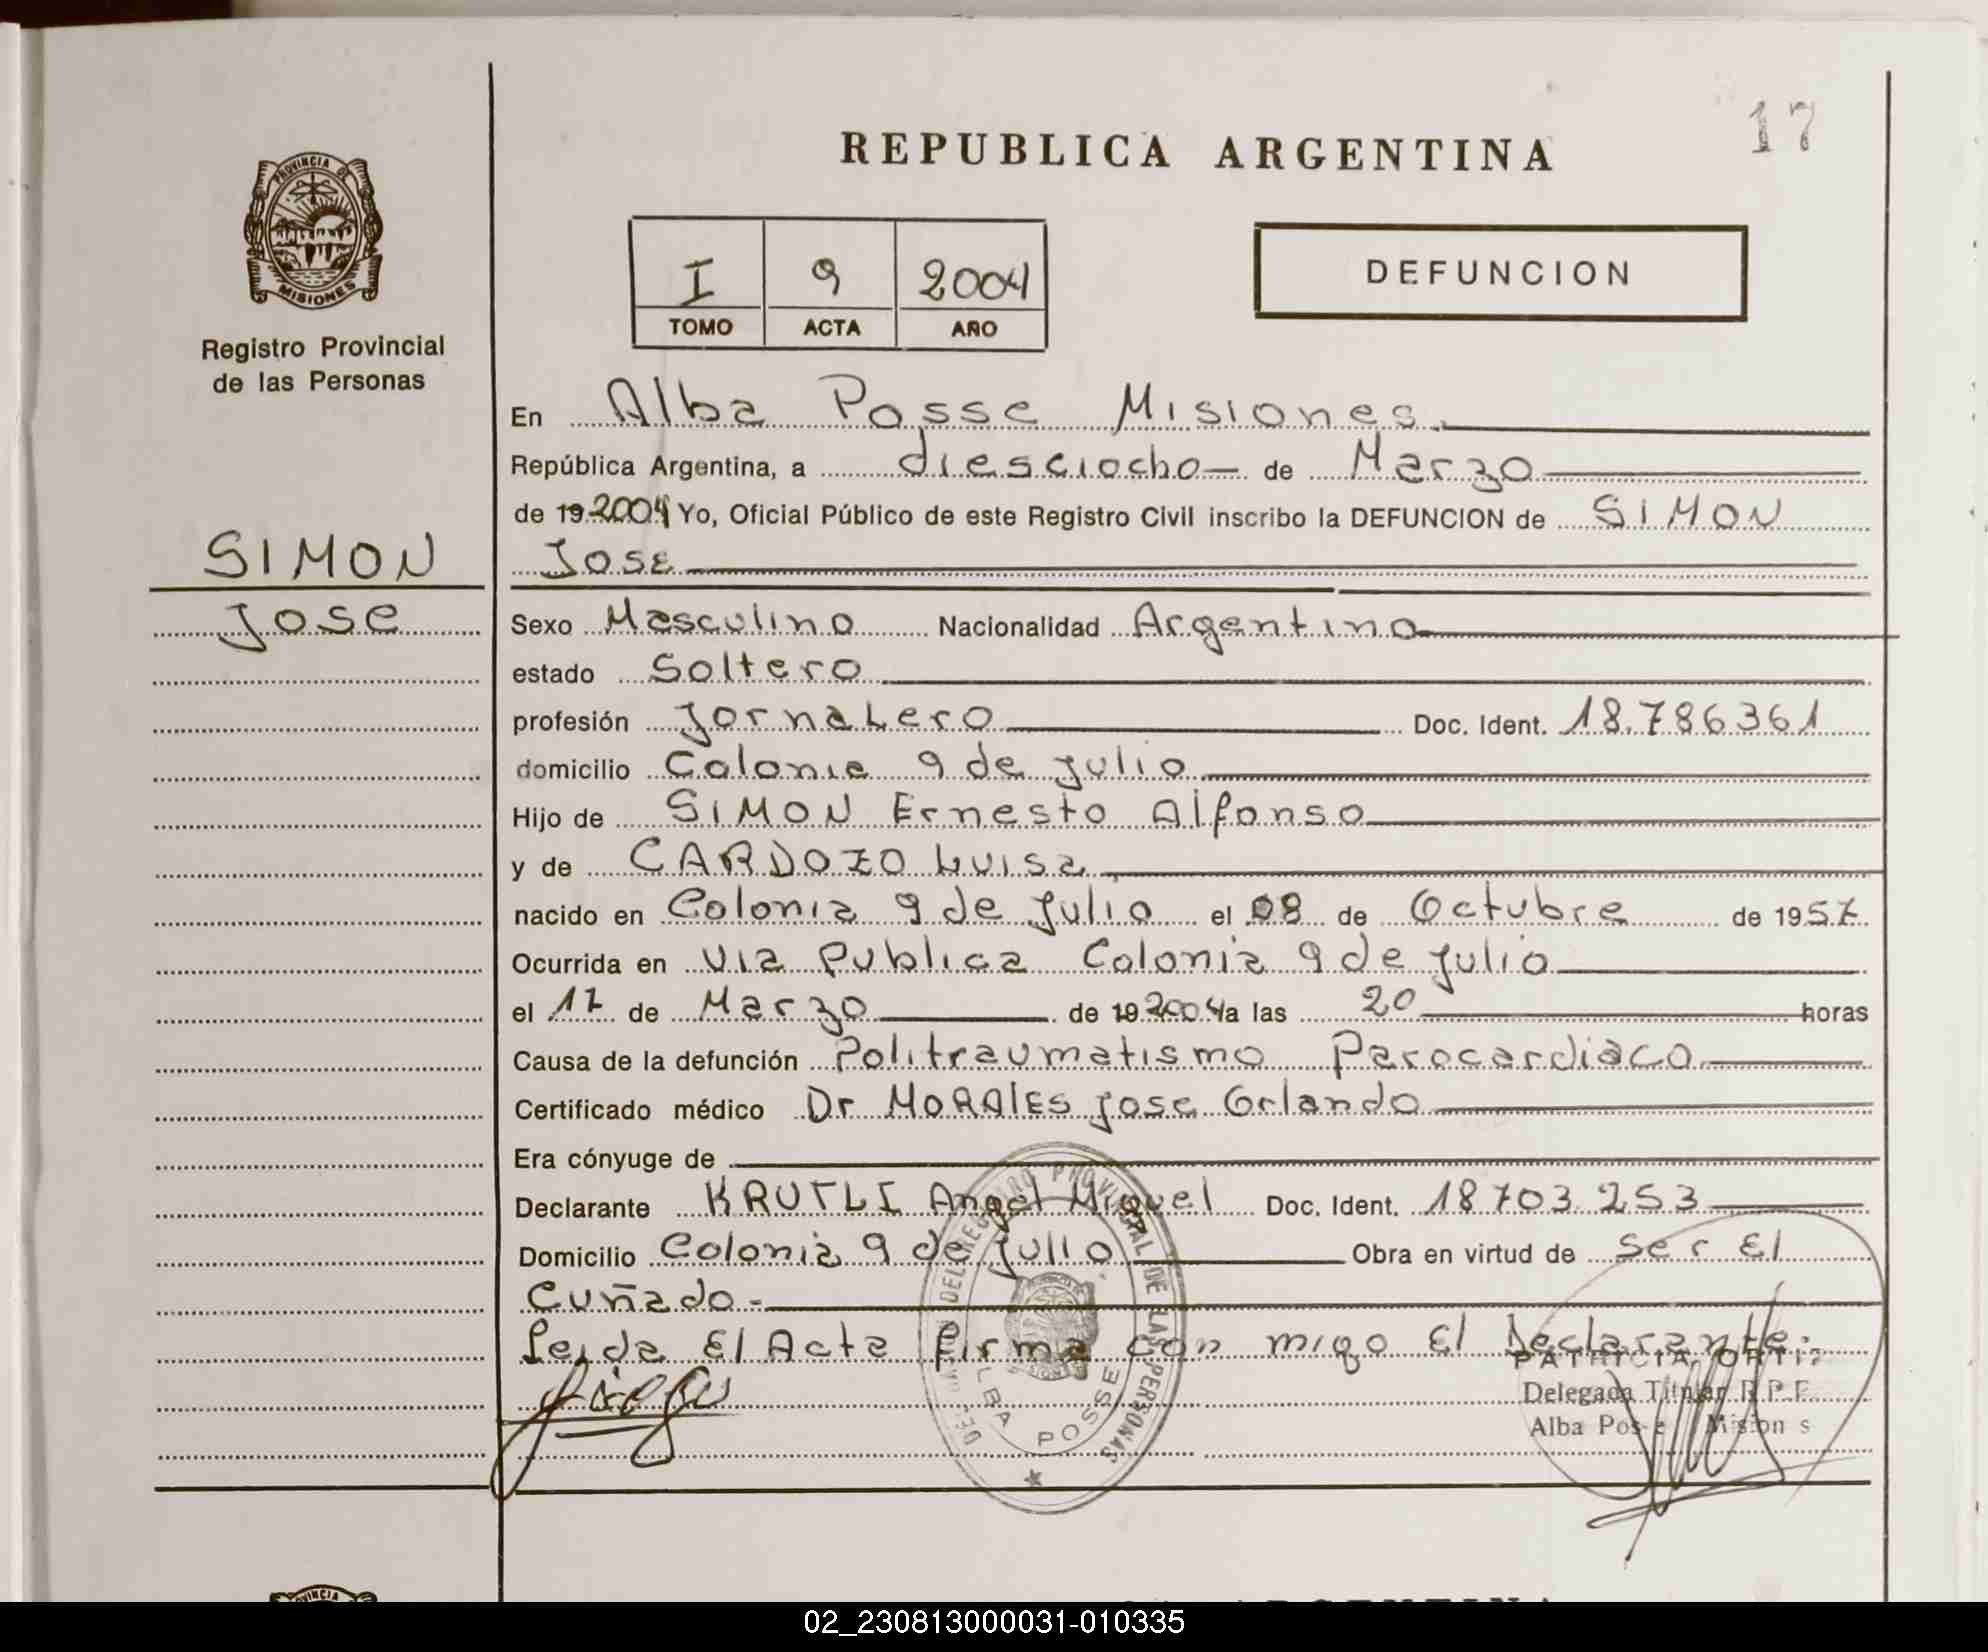 17
REPUBLICA ARGENTINA
PROVINCIA DE
MISIONES
Registro Provincial
de las Personas
I 9 2004
TOMO ACTA AÑO
DEFUNCION
SIMON
Jose
En Alba Posse Misiones.
República Argentina, a diesciocho de Marzo
de 19 2004 Yo, Oficial Público de este Registro Civil inscribo la DEFUNCION de SIMON
Jose
Sexo Masculino Nacionalidad Argentino
estado Soltero
profesión Jornalero Doc. Ident. 18.786361
domicilio Colonia 9 de julio
Hijo de SIMON Ernesto Alfonso
y de CARDOZO Luisa
nacido en Colonia 9 de Julio el 08 de Octubre de 1957
Ocurrida en via publica Colonia 9 de julio
el 17 de Marzo de 19 2004 a las 20 horas
Causa de la defunción Politraumatismo Parocardiaco
Certificado médico Dr MORALES Jose Orlando
Era cónyuge de
Declarante KRUTLI Angel Miguel Doc. Ident. 18703 253
Domicilio Colonia 9 de julio Obra en virtud de ser El
Cuñado-
Leida El Acta firma con migo El Declarante.
DELEGACION DEL REGISTRO PROVINCIAL DE LAS PERSONAS
ALBA POSSE
PATRICIA ORTIZ
Delegada Titular R.P.P.
Alba Posse Misiones
02_230813000031-010335